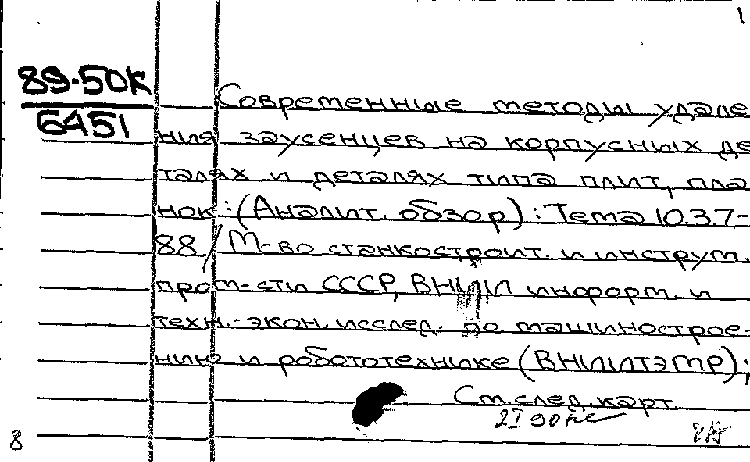 1
89-50К
6451
Современные методы удале
ния заусенцев на корпусных де
талях и деталях типа плит, пла
нок: (Аналит. обзор): Тема 10.3.7-
88/ М-во станкостроит. и инструм.
пром-сти СССР, ВНИИ информ. и
техн.-экон. исслед. по машинострое-
нию и робототехнике (ВНИИТЭМР);
См. след. карт.
8